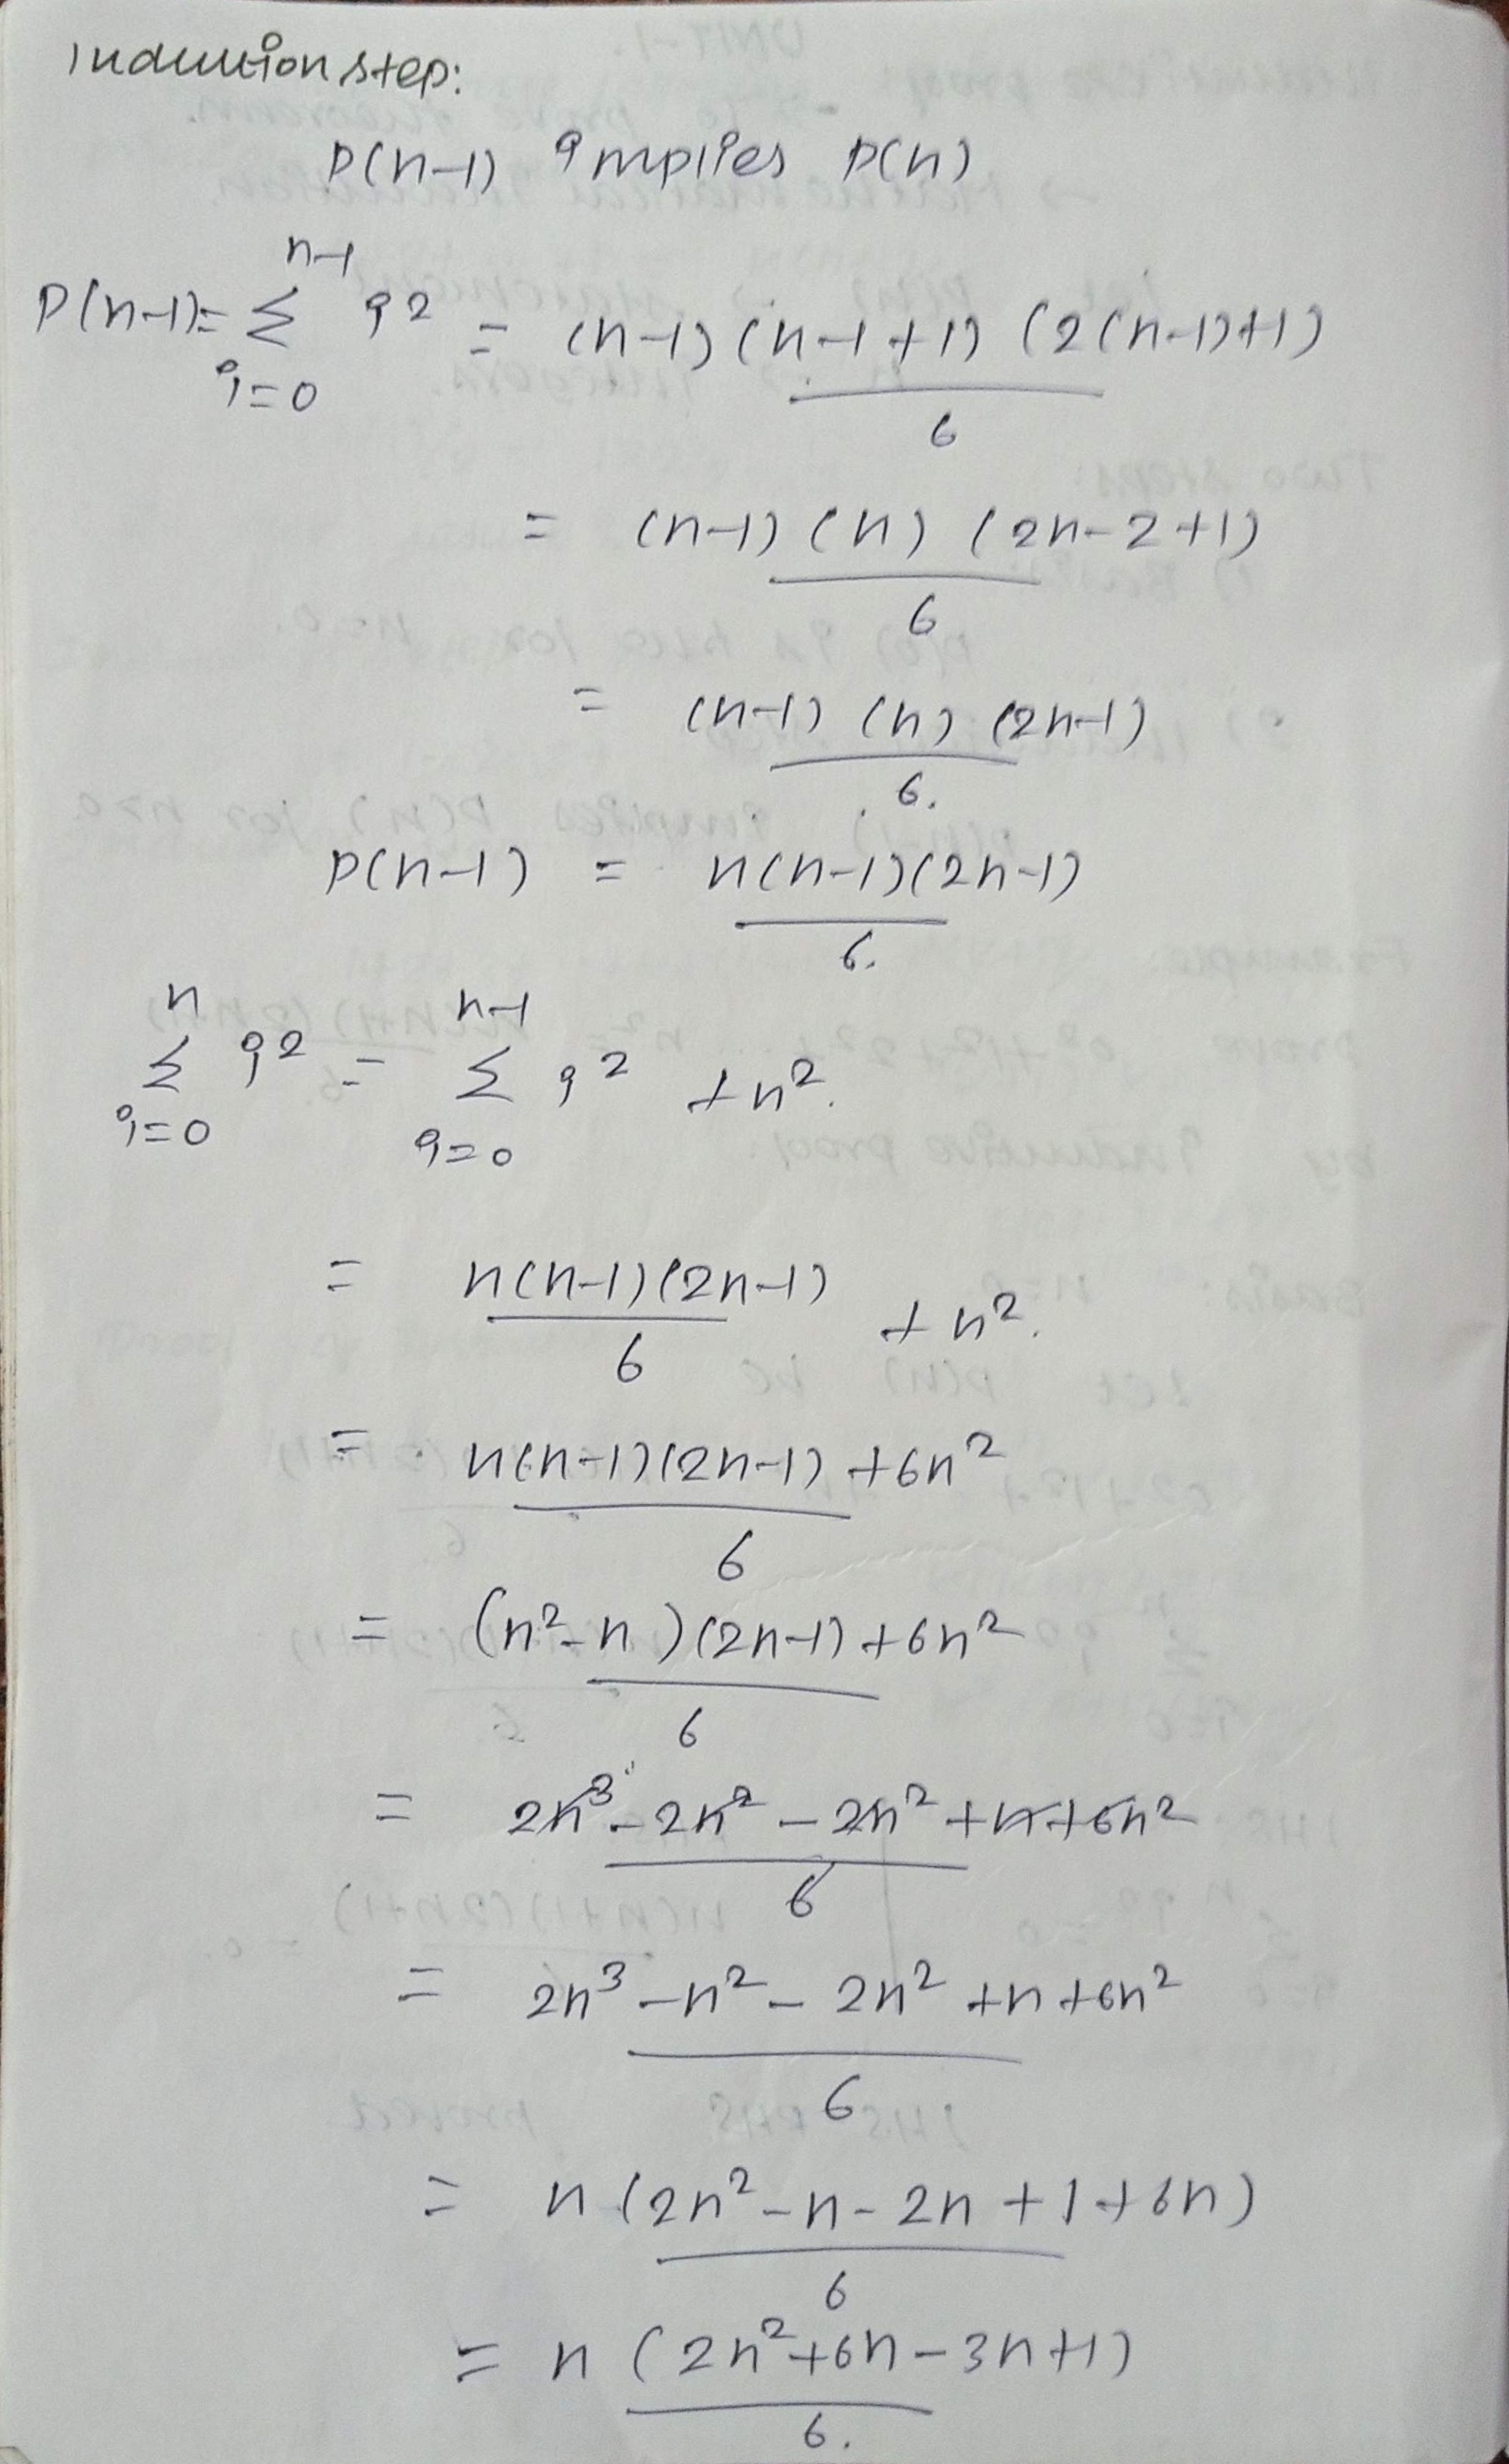 Induction step:
P(n-1) implies P(n)
n-1
P(n-1)= Σ i² = (n-1) (n-1+1) (2(n-1)+1)
i=0
6
= (n-1) (n) (2n-2+1)
6
= (n-1) (n) (2n-1)
6.
P(n-1) = n(n-1)(2n-1)
6.
n n-1
Σ i² = Σ i² + n².
i=0 i=0
= n(n-1)(2n-1) + n².
6
= n(n-1)(2n-1) + 6n²
6
= (n²-n)(2n-1) + 6n²
6
= 2n³ - 2n² - 2n² + n + 6n²
6
= 2n³ - n² - 2n² + n + 6n²
6
= n (2n² - n - 2n + 1 + 6n)
6
= n (2n² + 6n - 3n + 1)
6.